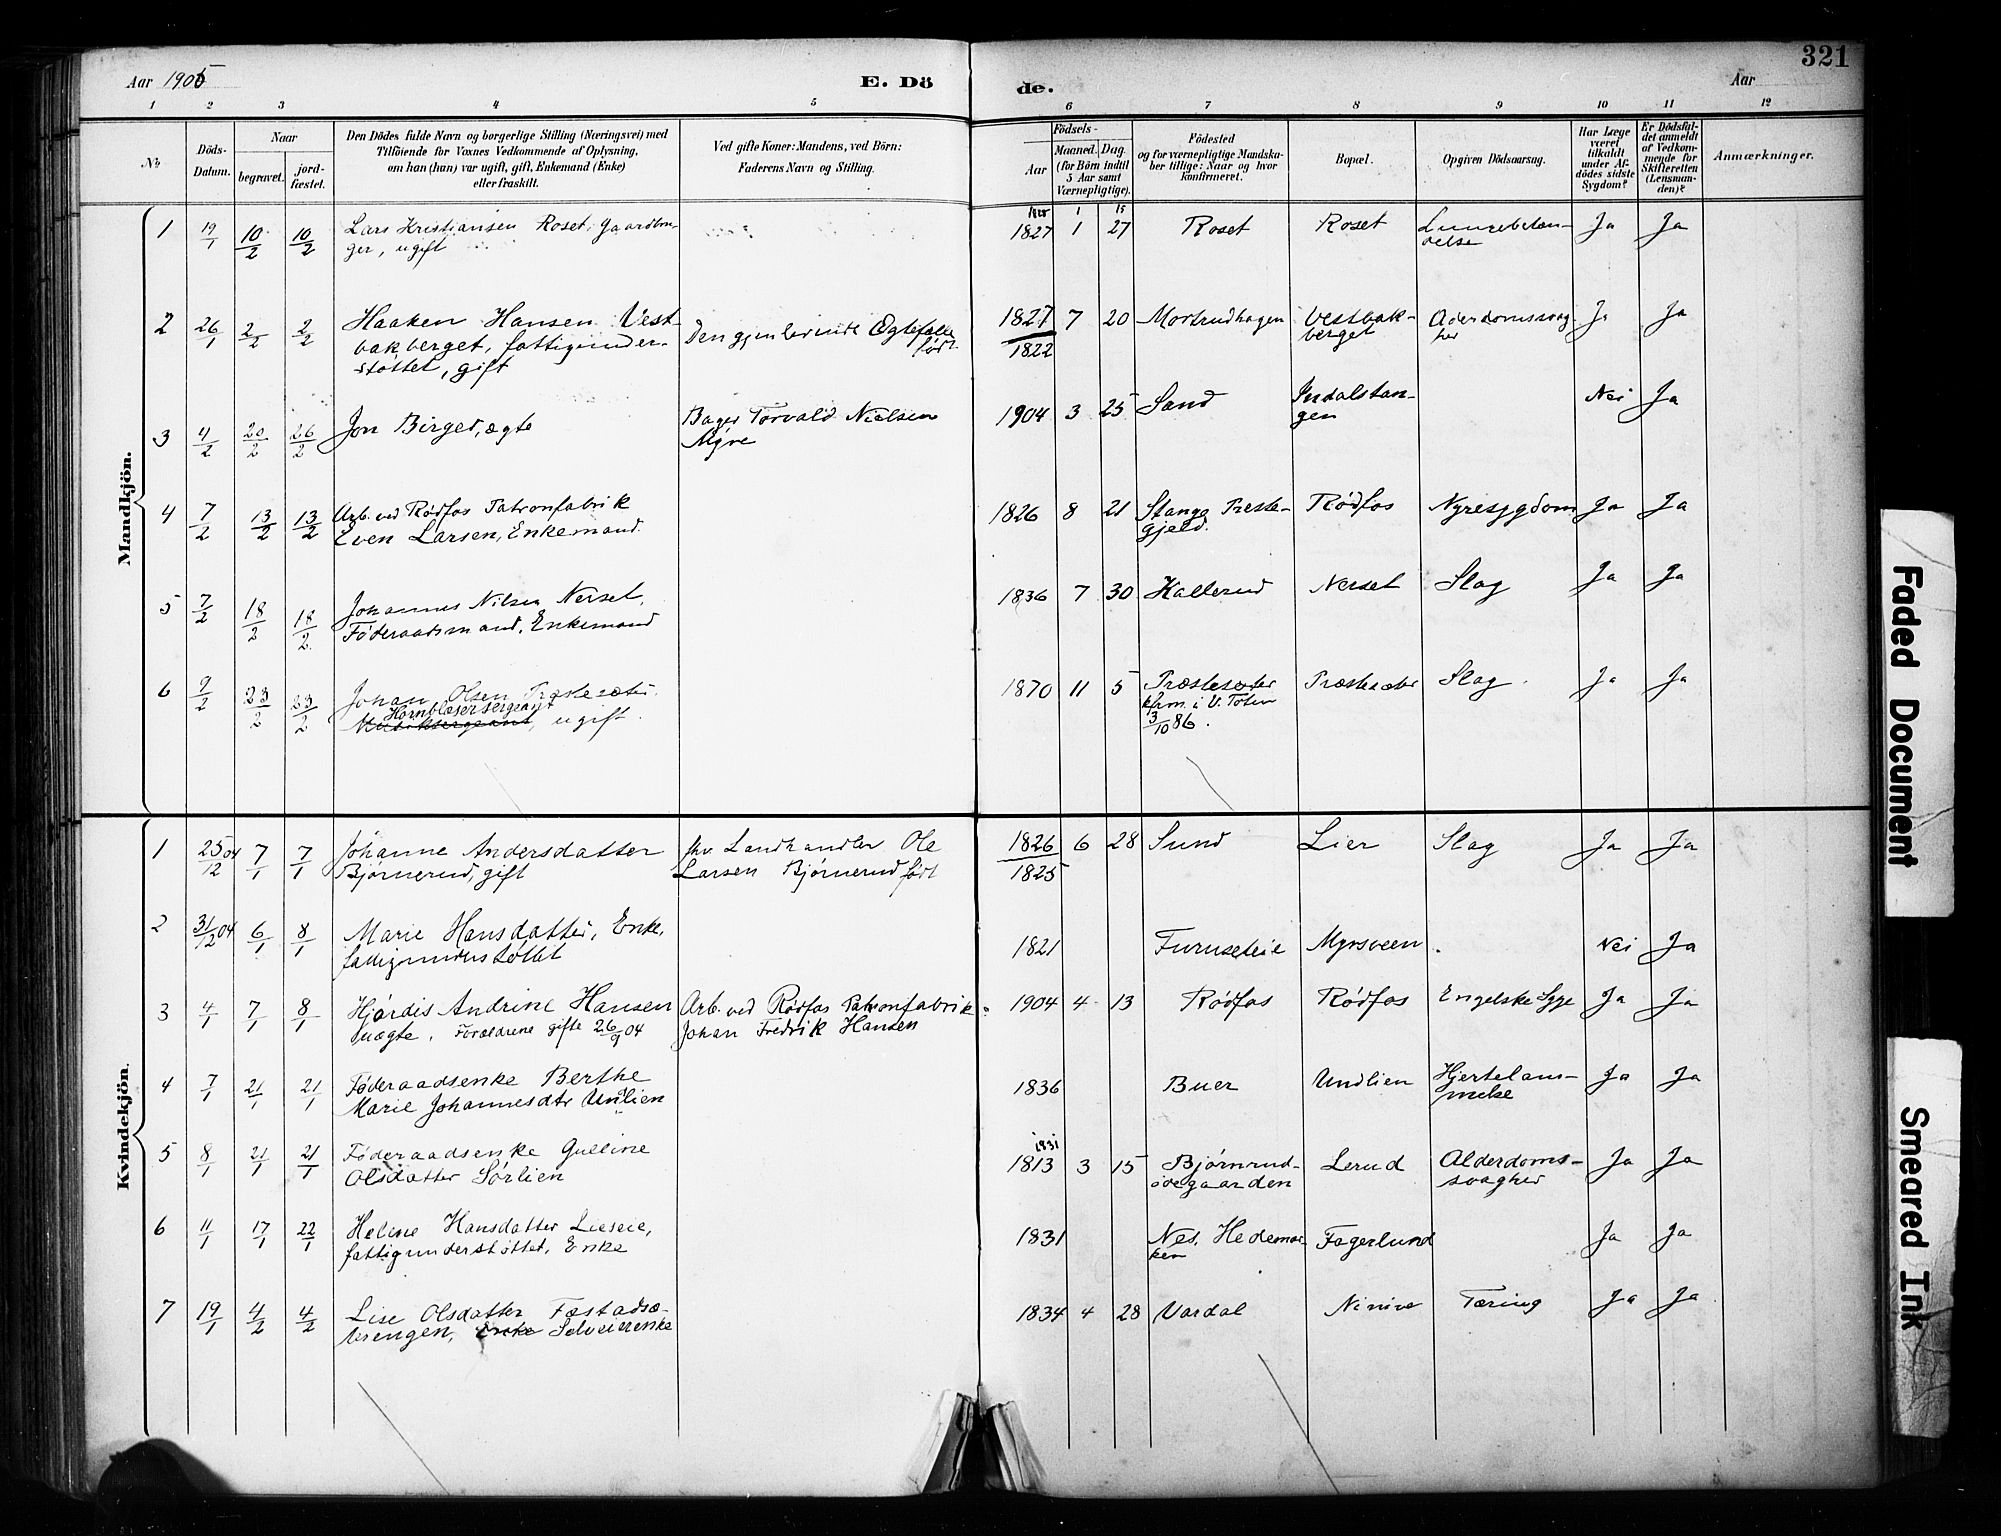 321
Aar 1905
E. Dö
de.
Aar
1 2 3 4 5 6 7 8 9 10 11 12
No
Döds-Datum.
Naar
begravet.
jord-fæstet.
Den Dödes fulde Navn og borgerlige Stilling (Næringsvei) med
Tilföiende for Voxnes Vedkommende af Oplysning,
om han (hun) var ugift, gift, Enkemand (Enke)
eller fraskilt.
Ved gifte Koner: Mandens, ved Börn:
Faderens Navn og Stilling.
Födsels-
Aar
Maaned. Dag.
(for Börn indtil
5 Aar samt
Værnepligtige).
Födested
og for værnepligtige Mandska-
ber tillige: Naar og hvor
konfirmeret.
Bopæl.
Opgiven Dödsaarsag.
Har Læge
været
tilkaldt
under Af-
dödes sidste
Sygdom?
Er Dödsfal-
det anmeldt
af Vedkom-
mende for
Skifteretten
(Lensman-
den)?
Anmærkninger.
Mandkjön.
1 19/1 10/2 10/2 Lars Kristiansen Roset, Gaardbru-
ger, ugift
1827 1 27 Roset Roset Lungebetæn-
delse Ja Ja
1 15
2 26/1 2/2 2/2 Haaken Hansen Vest-
bakberget, fattigunder-
støttet, gift
Den gjenlevende Ægtefælle
født
1827 7 20 Mortrudhagen Vestbak-
berget Alderdomssvag-
hed Ja Ja
1822
3 4/2 20/2 26/2 Jon Birger, ægte
Bager Torvald Nielsen
Myre
1904 3 25 Sand Indalstan-
gen Nei Ja
4 7/2 13/2 13/2 Arb. ved Rødfos Patronfabrik
Even Larsen, Enkemand.
1826 8 21 Stange Preste-
gjeld. Rødfos Nyresygdom Ja Ja
5 7/2 18/2 18/2 Johannes Nilsen Nerset,
Føderaadsmand, Enkemand
1836 7 30 Kallerud Nerset Slag Ja Ja
6 9/2 23/2 23/2 Johan Olsen Præstesæter
Hornblæsersergeant
Musiksergeant, ugift.
1870 11 5 Præstesæter
kfrm. i V. Toten
3/10 86. Præstesæter Slag. Ja Ja
Kvindekjön.
1 25/12 04 7/1 7/1 Johanne Andersdatter
Bjørnerud, gift
fhv. Landhandler Ole
Larsen Bjørnerud født
1826 6 28 Sund Lier Slag Ja Ja
1825
2 31/12 04 6/1 8/1 Marie Hansdatter, Enke,
fattigunderstøttet
1821 Furuseteie Myrsveen Nei Ja
3 4/1 7/1 8/1 Hjørdis Andrine Hansen
uægte. Forældrene gifte 26/9 04
Arb. ved Rødfos Patronfabrik
Johan Fredrik Hansen
1904 4 13 Rødfos Rødfos Engelske Syge Ja Ja
4 7/1 21/1 21/1 Føderaadsenke Berthe
Marie Johannesdtr Undlien
1836 Buer Undlien Hjertelam-
melse Ja Ja
5 8/1 21/1 21/1 Føderaadsenke Gulline
Olsdatter Sørlien
1831
1813 3 15 Bjørnrud-
ødegaarden Lerud Alderdoms-
svaghed Ja Ja
6 11/1 17/1 22/1 Helene Hansdatter Lieseie,
fattigunderstøttet, Enke
1831 Nes, Hedemar-
ken Fagerlund Ja Ja
7 19/1 4/2 4/2 Lise Olsdatter Fæstadsæ-
terengen, Enke Selveierenke
1834 4 28 Vardal Ninive Tæring Ja Ja
Faded Document
Smeared Ink